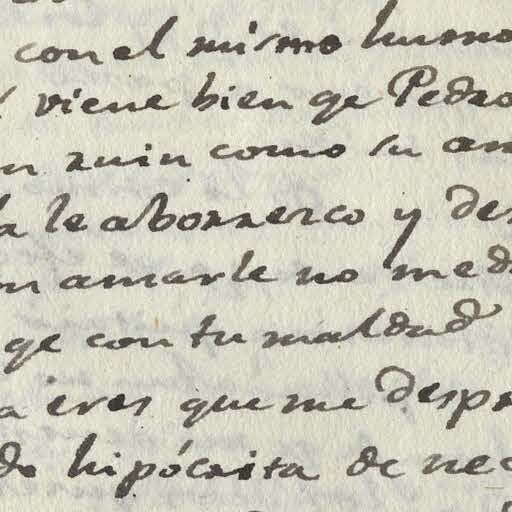 con el mismo bueno
viene bien qe Pedro
n ruin como su am
a le aborrerco y des
n amarle no me d
qe con tu maldad
a eres que me despr
do hipócrita de nec